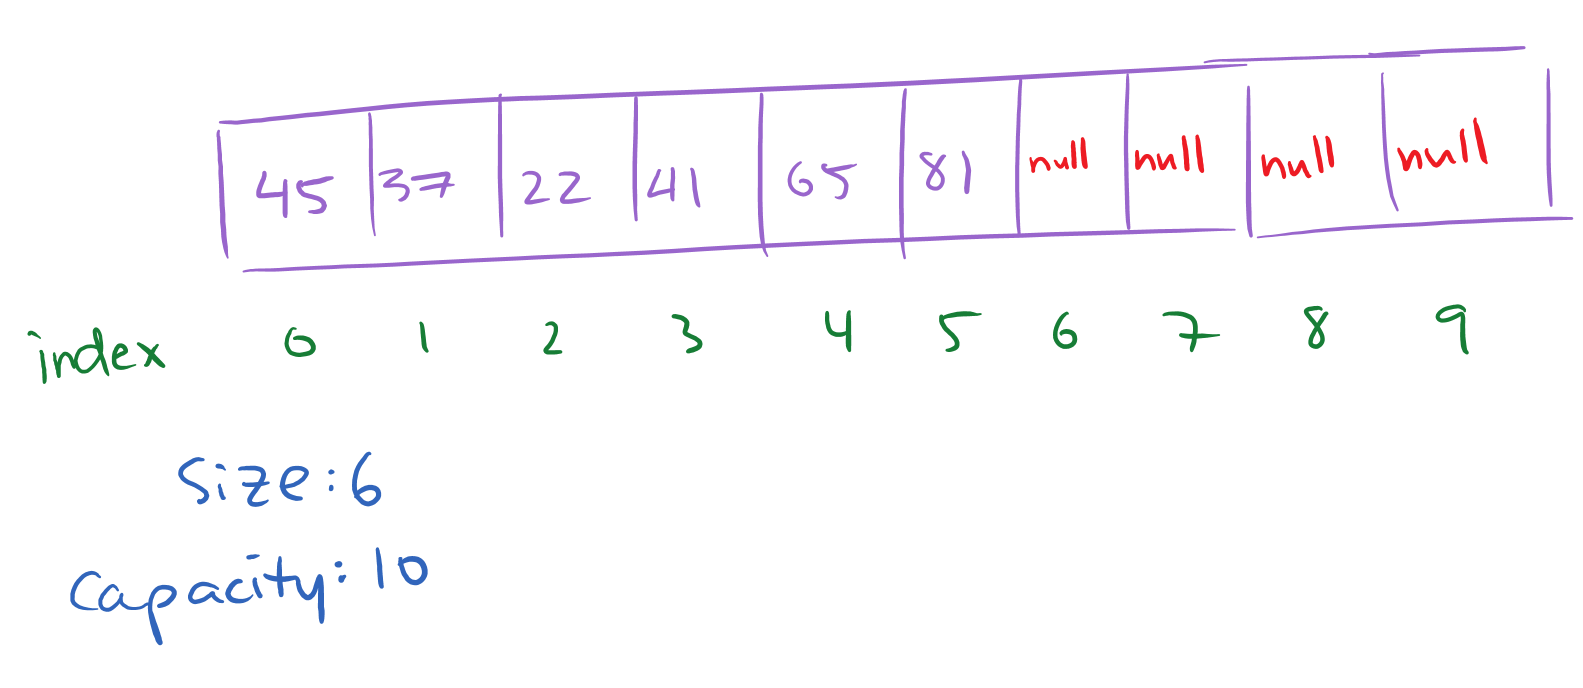 45 37 22 41 65 81 null null null null
index 0 1 2 3 4 5 6 7 8 9
Size: 6
Capacity: 10